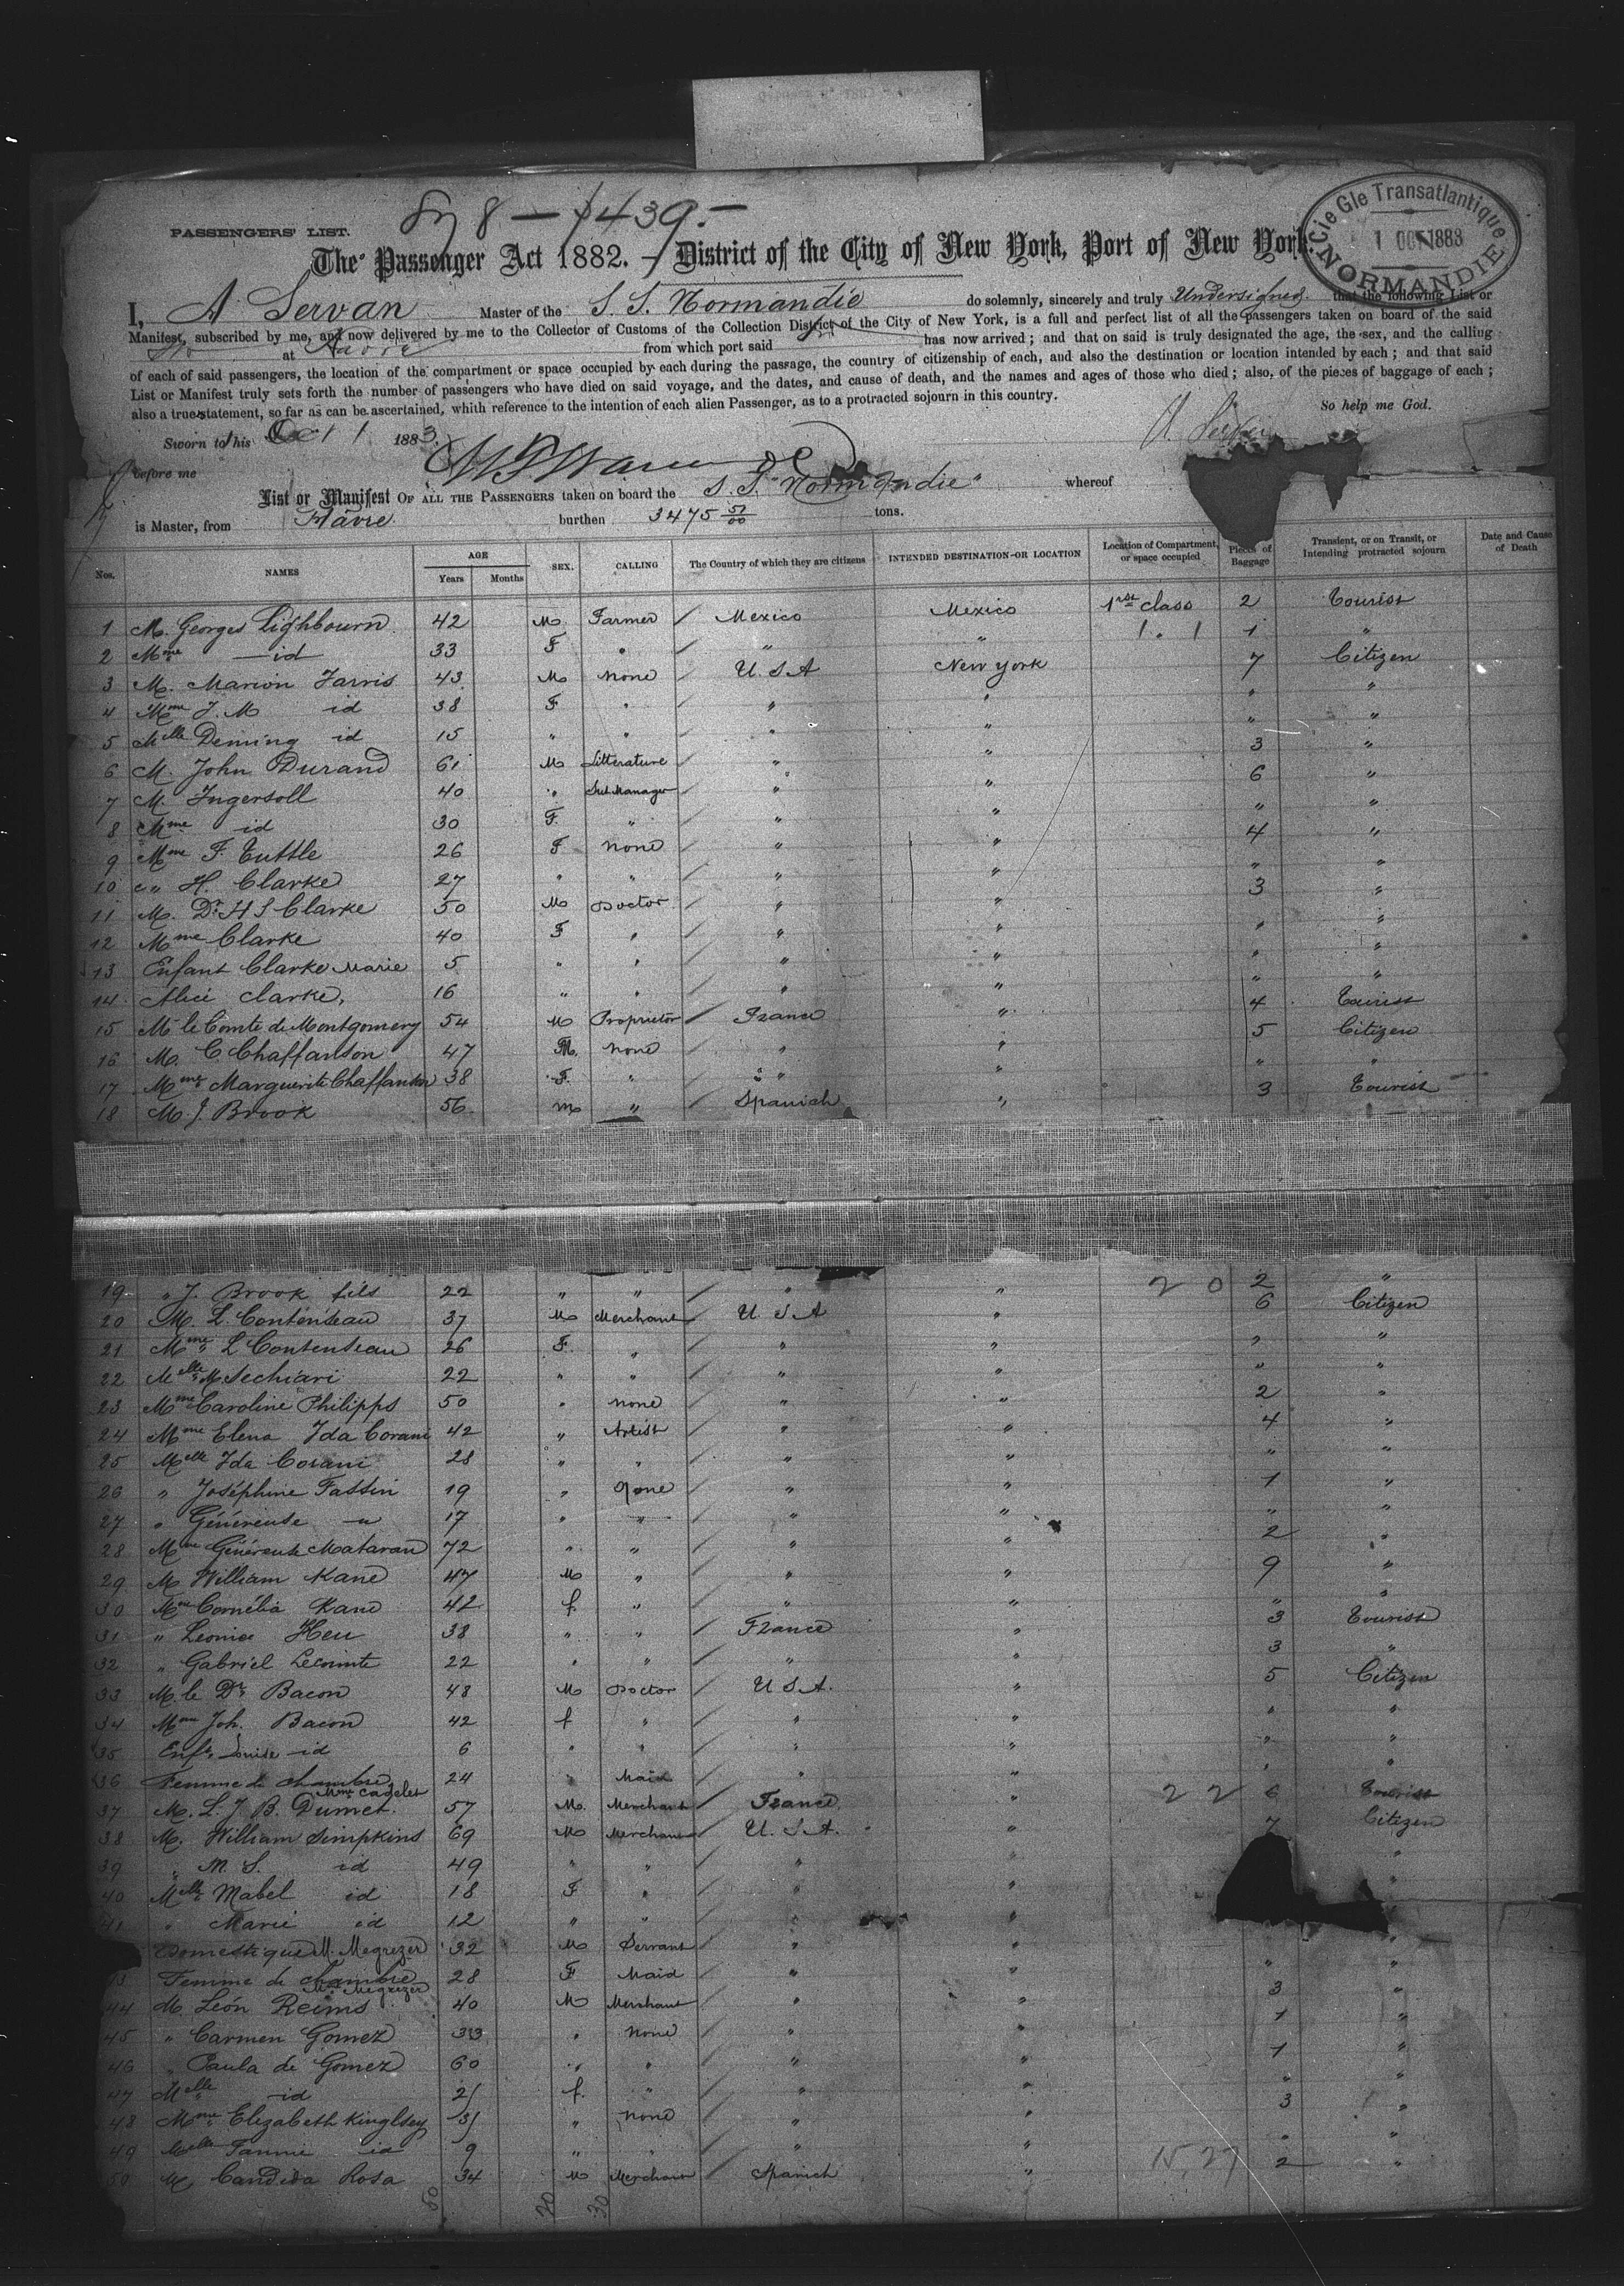 8 — 1439. —
Cie Gle Transatlantique
1 OCT 1883
NORMANDIE
PASSENGERS' LIST.
The Passenger Act 1882. — District of the City of New York, Port of New York.
I, A Servan Master of the S. S. Normandie do solemnly, sincerely and truly Undersigned that the following List or
Manifest, subscribed by me, and now delivered by me to the Collector of Customs of the Collection District of the City of New York, is a full and perfect list of all the passengers taken on board of the said
at Havre from which port said has now arrived; and that on said is truly designated the age, the sex, and the calling
of each of said passengers, the location of the compartment or space occupied by each during the passage, the country of citizenship of each, and also the destination or location intended by each; and that said
List or Manifest truly sets forth the number of passengers who have died on said voyage, and the dates, and cause of death, and the names and ages of those who died; also, of the pieces of baggage of each;
also a true statement, so far as can be ascertained, whith reference to the intention of each alien Passenger, as to a protracted sojourn in this country. So help me God.
Sworn to this Oct 1 1883.
before me
List or Manifest OF ALL THE PASSENGERS taken on board the S. S. "Normandie" whereof
is Master, from Hâvre burthen 3475 51/00 tons.
Nos. NAMES AGE Years Months SEX. CALLING The Country of which they are citizens INTENDED DESTINATION-OR LOCATION Location of Compartment, or space occupied Pieces of Baggage Transient, or on Transit, or Intending protracted sojourn Date and Cause of Death
1 M. Georges Lighbourn 42 M Farmer / Mexico Mexico 1rst class 2 Tourist
2 Mme — id 33 F " / " " 1 . 1 1 "
3 M. Marion Farris 43 M None / U. S. A New York 7 Citizen
4 Mme J. M id 38 F " / " " " "
5 Melle Deming id 15 " " / " " " "
6 M. John Durand 61 M Litterature / " " 3 "
7 M. Ingersoll 40 " Manager / " " 6 "
8 Mme id 30 F. " / " " " "
9 Mme F. Tuttle 26 F None / " " 4 "
10 " H. Clarke 27 " " / " " " "
11 M. Dr H S Clarke 50 M Doctor / " " 3 "
12 Mme Clarke 40 F " / " " " "
13 Enfant Clarke Marie 5 " " / " " " "
14 Alice Clarke, 16 " " / " " " "
15 M le Comte de Montgomery 54 M Proprietor / France " 4 Tourist
16 M. C. Chaffanson 47 M. None / " " 5 Citizen
17 Mme Marguerite Chaffanson 38 F. " / " " " "
18 M. J. Brook 56 M " / Spanich " 3 Tourist
19 " J. Brook fils 22 " " / " " 2 0 2 "
20 M. L. Contenseau 37 M Merchant / U. S. A " 6 Citizen
21 Mme L Contenseau 26 F. " / " " " "
22 Melle M. Sechiari 22 " " / " " " "
23 Mme Caroline Philipps 50 " None / " " 2 "
24 Mme Elena Ida Corani 42 " Artist / " " 4 "
25 Melle Ida Corani 28 " " / " " " "
26 " Joséphine Fassin 19 " None / " " 1 "
27 " Généreuse — " 17 " " / " " " "
28 Mme Généreuse Mataran 72 " " / " " 2 "
29 M William Kane 47 M " / " " 9 "
30 Mme Cornélia Kane 42 f. " / " " " "
31 " Leonice Heu 38 " " / France " 3 Tourist
32 " Gabriel Lecomte 22 " " / " " 3 "
33 M. le Dr Bacon 48 M Doctor / U S A. " 5 Citizen
34 Mme Joh. Bacon 42 f " / " " " "
35 Enft Louise id 6 " " / " " " "
36 Femme de chambre 24 " Maid / " " " "
Mme Cadelet
37 M. L. J. B. Dumet. 57 M. Merchant / France " 2 2 6 Tourist
38 M. William Simpkins 69 M Merchant / U. S. A. " 7 Citizen
39 " M. S. id 49 " " / " " "
40 Melle Mabel id 18 F " / " " "
41 " Marie id 12 " " / " "
Domestique M. Megrezer 32 M Servant / " " "
43 Femme de chambre 28 F Maid / " " " "
Megrezer
44 M. León Reims 40 M Merchant / " " 3 "
45 " Carmen Gomez 33 " None / " " 1 "
46 " Paula de Gomez 60 " " / " " 1 "
47 Melle — id 21 f. " / " " " "
48 Mme Elizabeth Kinglsey 31 " None / " " 3 "
49 Melle Fannie id 9 " " / " " " "
50 M. Candida Rosa 34 M Merchant / Spanich " 15, 27 2 "
50 20 30